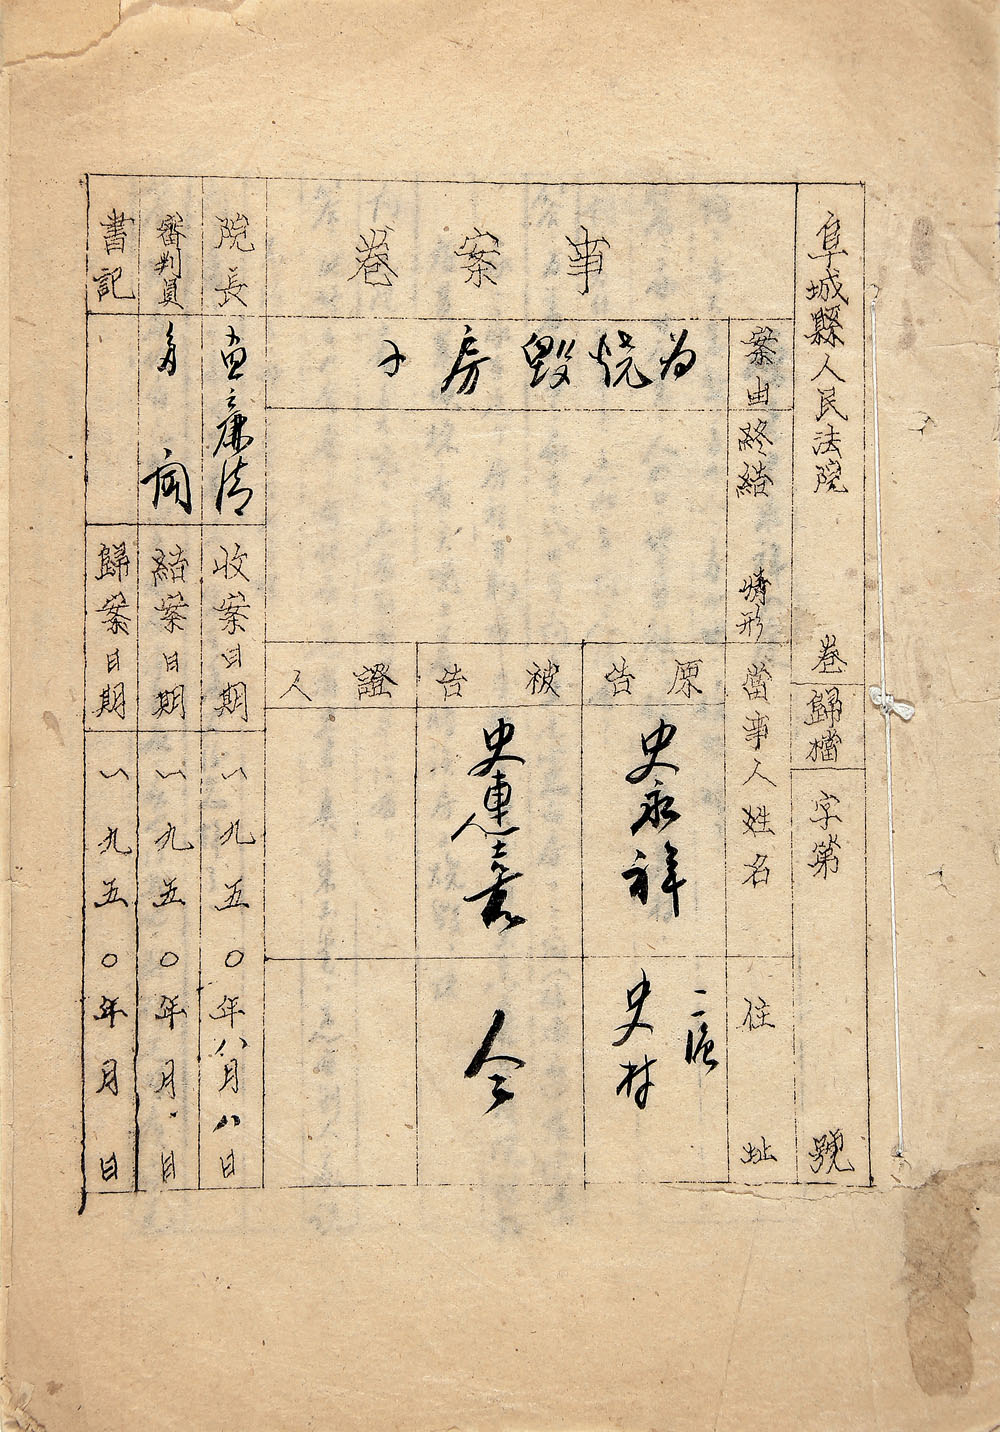 阜城縣人民法院
卷
歸檔
字第
號
事案卷
案由
为燒毀房子
終結情形
當事人姓名
住址
原告
史永祥
二區
史村
被告
史惠嘉
仝
證人
院長
廉清
收案日期
一九五〇年八月八日
審判員
結案日期
一九五〇年月日
書記
歸案日期
一九五〇年月日